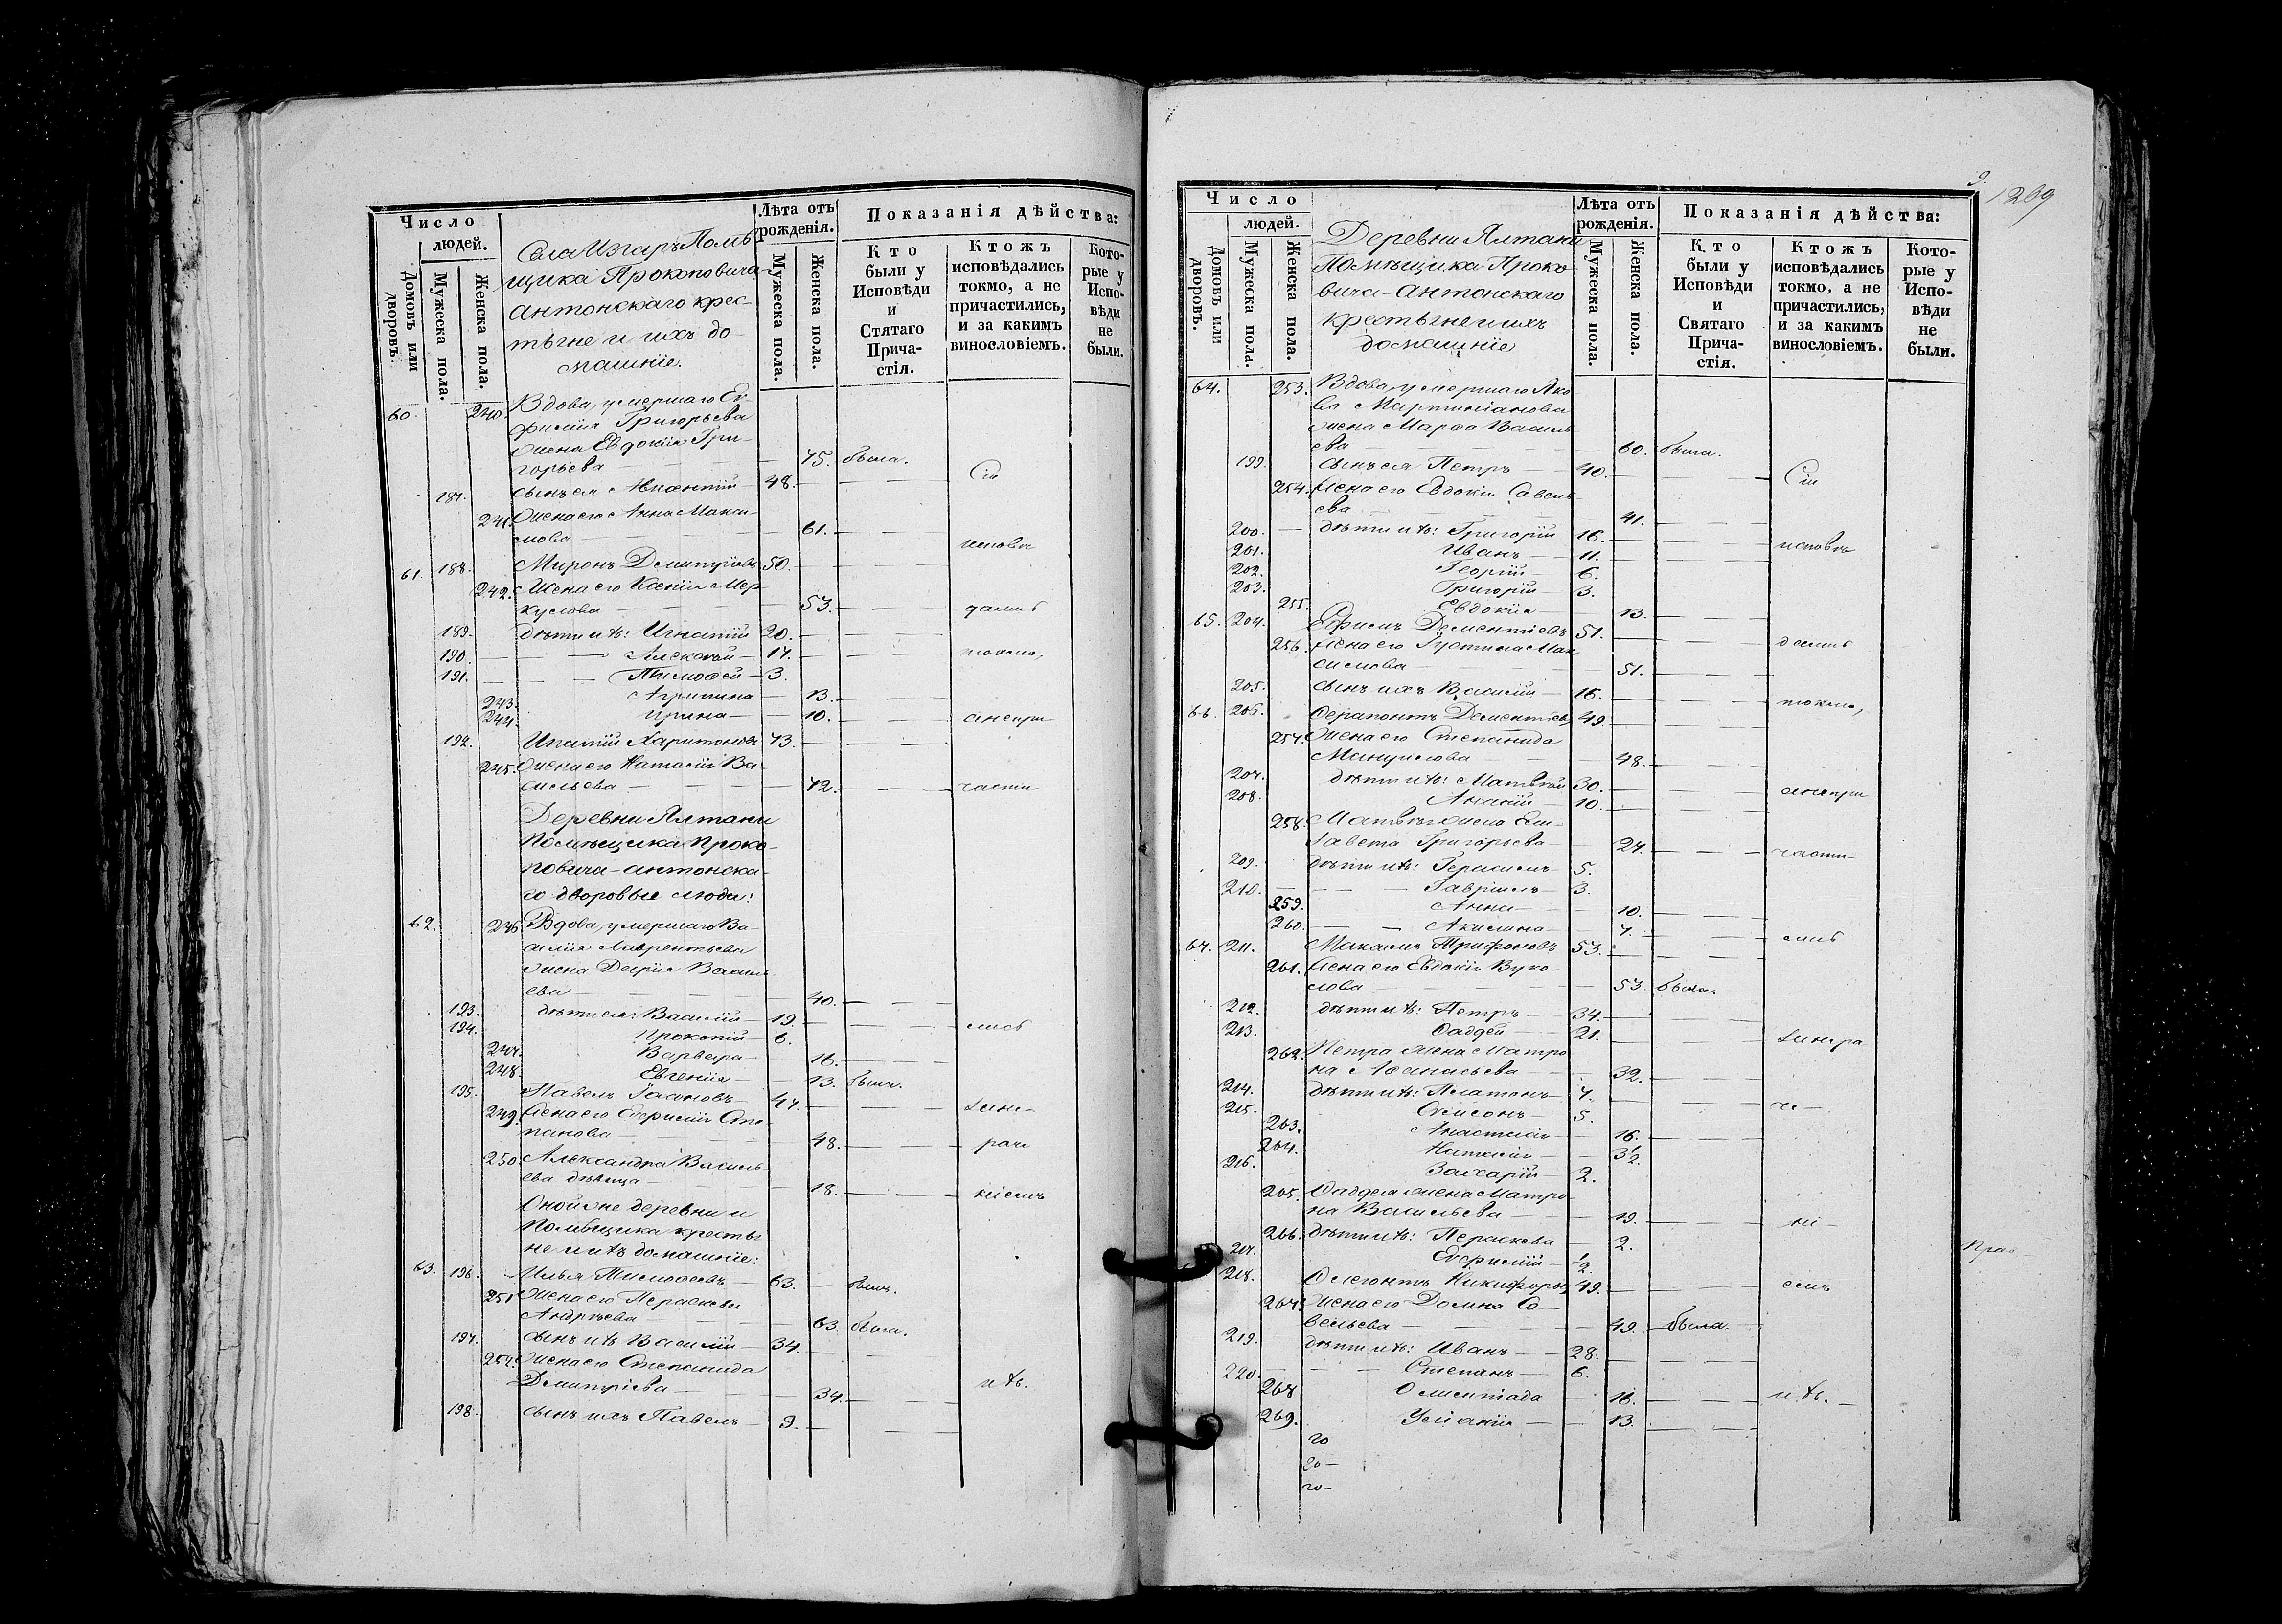 Число
людей.
Домовъ или дворовъ.
Мужеска пола.
Женска пола.
Села Изаръ Помѣ
щика Прокоповича
Антонскаго крес-
тьяне и ихъ до-
машніе.
Лѣта отъ
рожденія.
Мужеска пола.
Женска пола.
Показанія дѣйства:
Кто
были у
Исповѣди
и
Стятаго
Прича-
стія.
Ктожъ
исповѣдались
токмо, а не
причастились,
и за какимъ
винословіемъ.
Кото-
рые у
Испо-
вѣди
не
были.
60. 240. Вдова, умершаго Ев-
фимія Григорьева
жена Евдокія Гри-
горьева 75. была.
187. сынъ ея 48. Сіи
241. Жена его Анна Макси-
мова 61.
исповѣ
61. 188. Миронъ Димитріевъ 50.
242. Жена его Ксенія Мер-
кулова 53. дались
189. дѣти ихъ: Игнатій 20.
190. Алексѣй 17. токмо,
191. Тимофей 3.
243. Агрипина 13.
244. Ирина 10. а не при-
192. Игнатій Харитоновъ 73.
245. Жена его Наталія Ва-
сильева 72. части-
Деревни Ялтани
Помѣщика Проко-
повича-Антонска-
го дворовые люди:
62. 246. Вдова, умершаго Ва-
силія Лаврентьева
жена Дарія Василь-
ева 40.
193. дѣти ея: Василій 19. лись
194. Прокопій 6.
247. Варвара 16.
248. Евгенія 13. была.
195. Павелъ 47. за не-
249. Жена его Евфимія Сте-
панова 48. раче
250. Александра Василь-
ева дѣвица 18. ніемъ
Оной же деревни и
Помѣщика крестья
не и ихъ домашніе:
63. 196. Илья Тимофеевъ 63. былъ.
251. Жена его Параскева
Андреева 63. была.
197. сынъ ихъ Василій 34.
252. Жена его Степанида
Димитріева 34. ихъ.
198. сынъ ихъ Павелъ 9.
9.
1269
Число
людей.
Домовъ или дворовъ.
Мужеска пола.
Женска пола.
Деревни Ялтани
Помѣщика Проко-
вича-Антонскаго
крестьяне и ихъ
домашніе
Лѣта отъ
рожденія.
Мужеска пола.
Женска пола.
Показанія дѣйства:
Кто
были у
Исповѣди
и
Святаго
Прича-
стія.
Ктожъ
исповѣдались
токмо, а не
причастились,
и за какимъ
винословіемъ.
Кото-
рые у
Испо-
вѣди
не
были.
64. 253. Вдова, умершаго Яко
ва Мартиніанова
жена Марѳа Василь
ева 60. была.
199. сынъ ея Петръ 40. Сіи
254. Жена его Евдокія Савель
ева 41.
200. дѣти ихъ: Григорій 16. исповѣ
201. Иванъ 11.
202. Георгій 6.
203. Григорій 3.
255. Евдокія 13.
65. 204. Ефимъ Дементіевъ 51. дались
256. Жена его Іустина Мак
симова 51.
205. сынъ ихъ Василій 16. токмо,
66. 206. Ѳерапонтъ Дементіевъ 49.
257. Жена его Степанида
48.
207. дѣти ихъ: Матвѣй 30. а не при
208. Ананій 10.
258. Матвѣя жена Ели-
завета Григорьева 27. части-
209. дѣти ихъ: Герасимъ 5.
210. Гавріилъ 3.
259. Анна 10.
260. Акилина 7. лись
67. 211. Максимъ Трифоновъ 53.
261. Жена его Евдокія Вуко-
лова 53. была.
212. дѣти ихъ: Петръ 34.
213. Ѳаддей 21. за нера
262. Петра жена Матро
на Аѳанасьева 32.
214. дѣти ихъ: Платонъ 7. че-
215. Самсонъ 5.
263. Анастасія 16.
264. Наталія 3 1/2.
216. Захарій 2.
265. Ѳаддея жена Матро
на Васильева 19. ні-
266. дѣти ихъ: Параскева 2.
217. Евфимій 1/2
218. Никифоровъ 49. емъ
267. Жена его Домна Са-
вельева 49. была.
219. дѣти ихъ: Иванъ 28.
220. Степанъ 6.
268. Олимпіада 16. ихъ.
269. Уліанія 13.
го
го-
го-